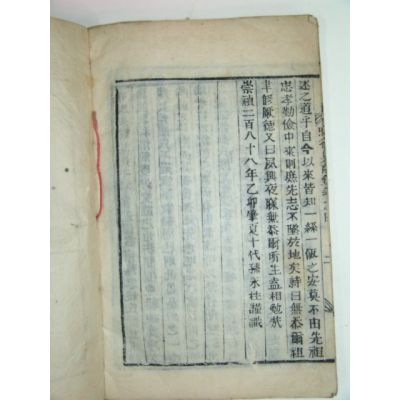 述之道乎自今以來皆知一縷一傾之安莫不由先祖
忠孝勤儉中來則庶先志不墜於地矣詩曰無忝爾祖
聿修厥德又曰夙興夜寐無忝爾所生盍相勉旃
崇禎二百八十八年乙卯肇夏十代孫永柱謹識